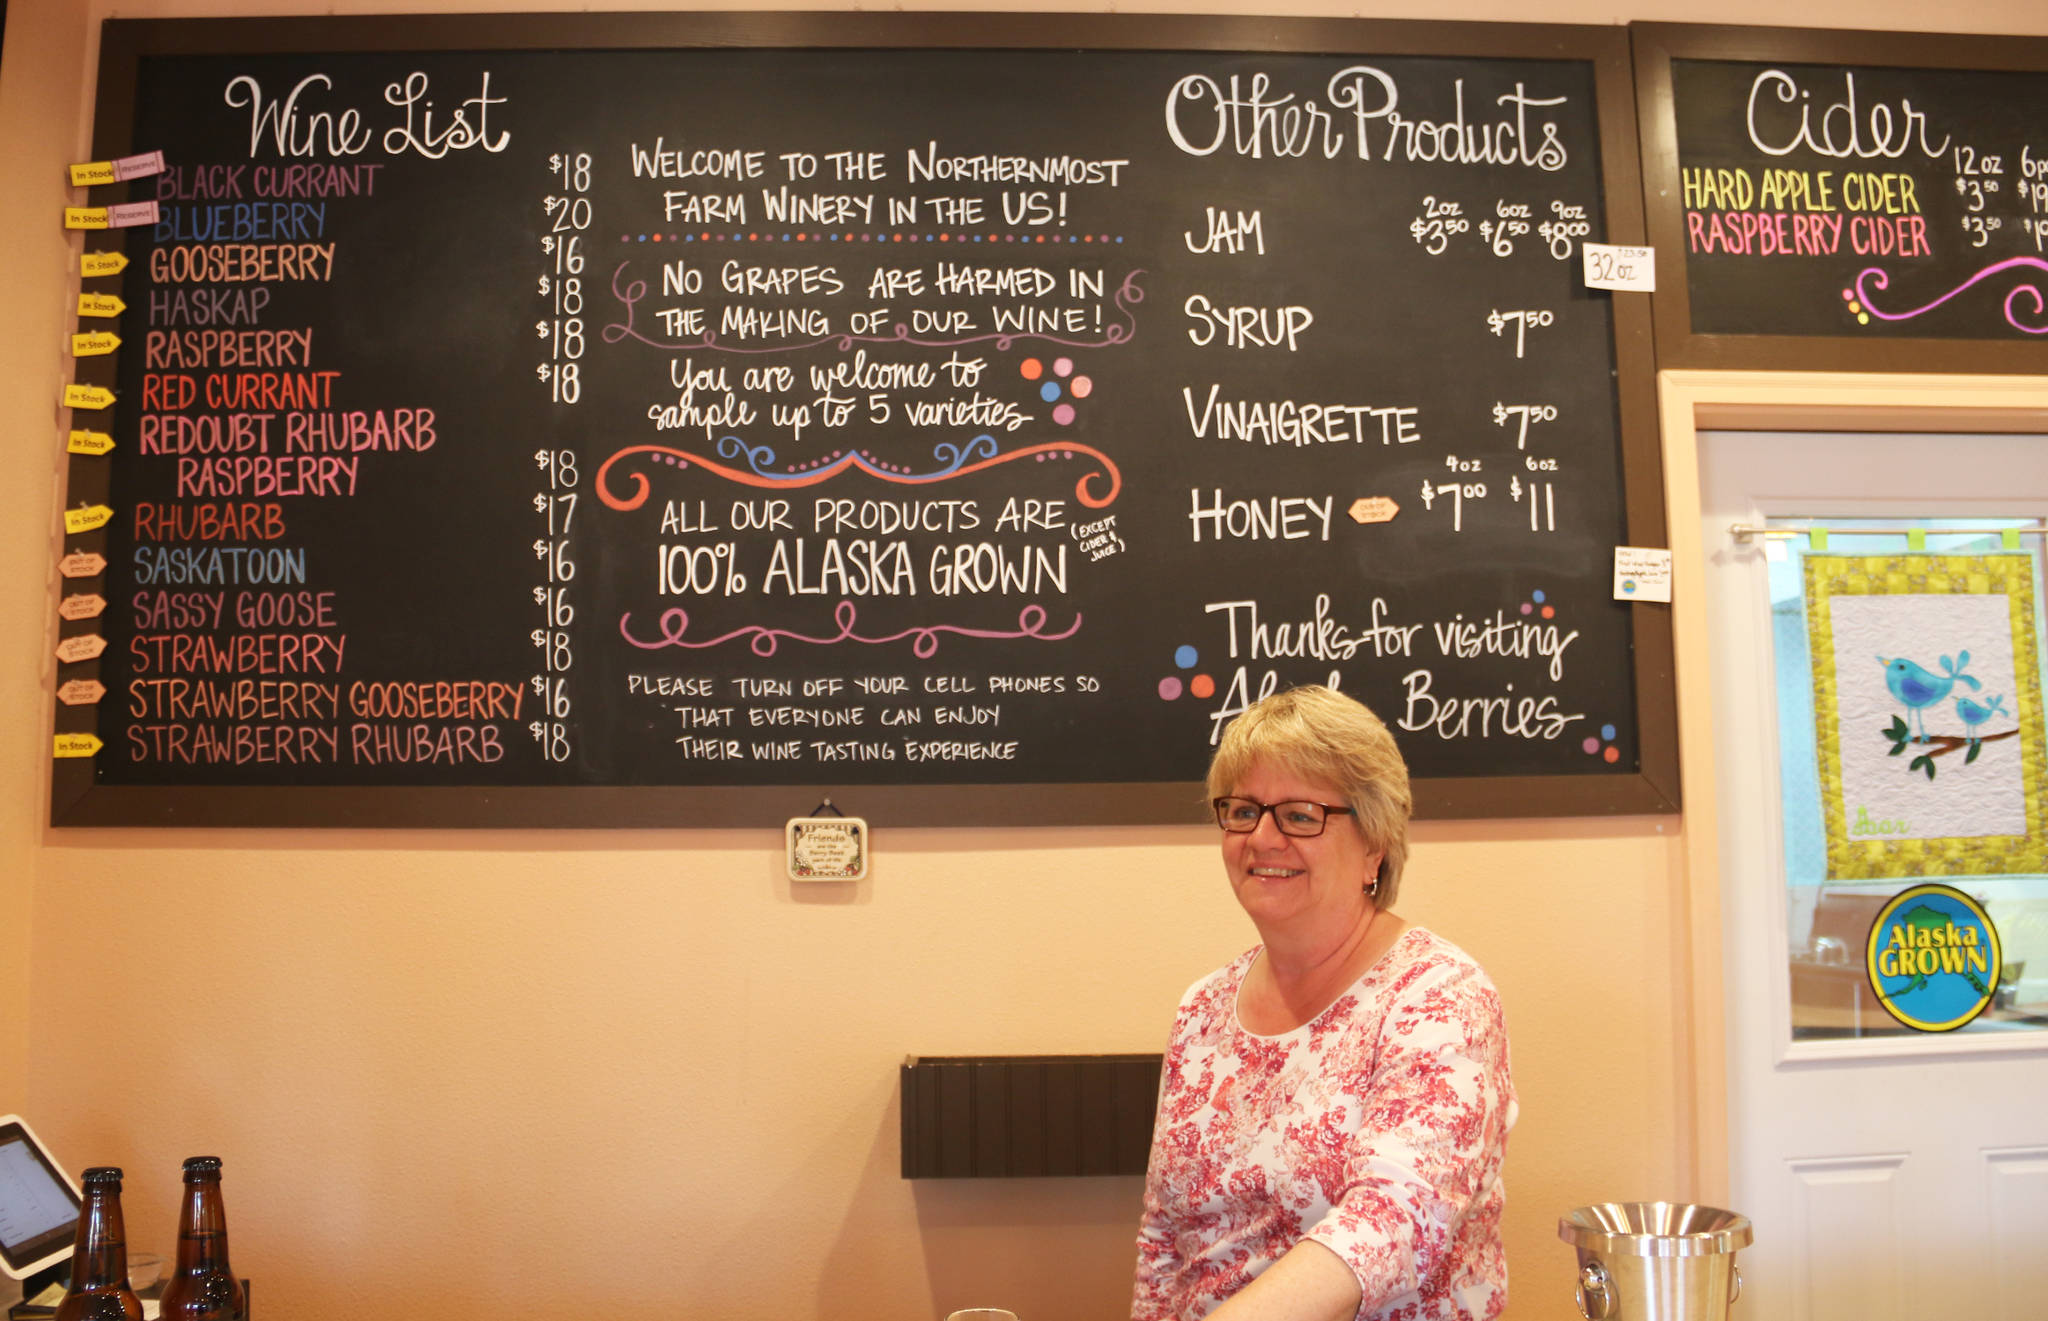 Wine List
In Stock RESERVE BLACK CURRANT $18
In Stock RESERVE BLUEBERRY $20
In Stock GOOSEBERRY $16
In Stock HASKAP $18
In Stock RASPBERRY $18
In Stock RED CURRANT $18
In Stock REDOUBT RHUBARB
RASPBERRY $18
In Stock RHUBARB $17
OUT OF STOCK SASKATOON $16
OUT OF STOCK SASSY GOOSE $16
OUT OF STOCK STRAWBERRY $18
OUT OF STOCK STRAWBERRY GOOSEBERRY $16
In Stock STRAWBERRY RHUBARB $18
WELCOME TO THE NORTHERNMOST
FARM WINERY IN THE US!
NO GRAPES ARE HARMED IN
THE MAKING OF OUR WINE!
You are welcome to
sample up to 5 varieties
ALL OUR PRODUCTS ARE
100% ALASKA GROWN
(EXCEPT
CIDER &
JUICE)
PLEASE TURN OFF YOUR CELL PHONES SO
THAT EVERYONE CAN ENJOY
THEIR WINE TASTING EXPERIENCE
Other Products
2oz 6oz 9oz
JAM $3.50 $6.50 $8.00
32 oz
SYRUP $7.50
VINAIGRETTE $7.50
4oz 6oz
HONEY OUT OF STOCK $7.00 $11
Thanks for visiting
Berries
Cider
12 oz
HARD APPLE CIDER $3.50 $19
RASPBERRY CIDER $3.50
Friends
are the
Berry Best
part of life
Alaska
GROWN